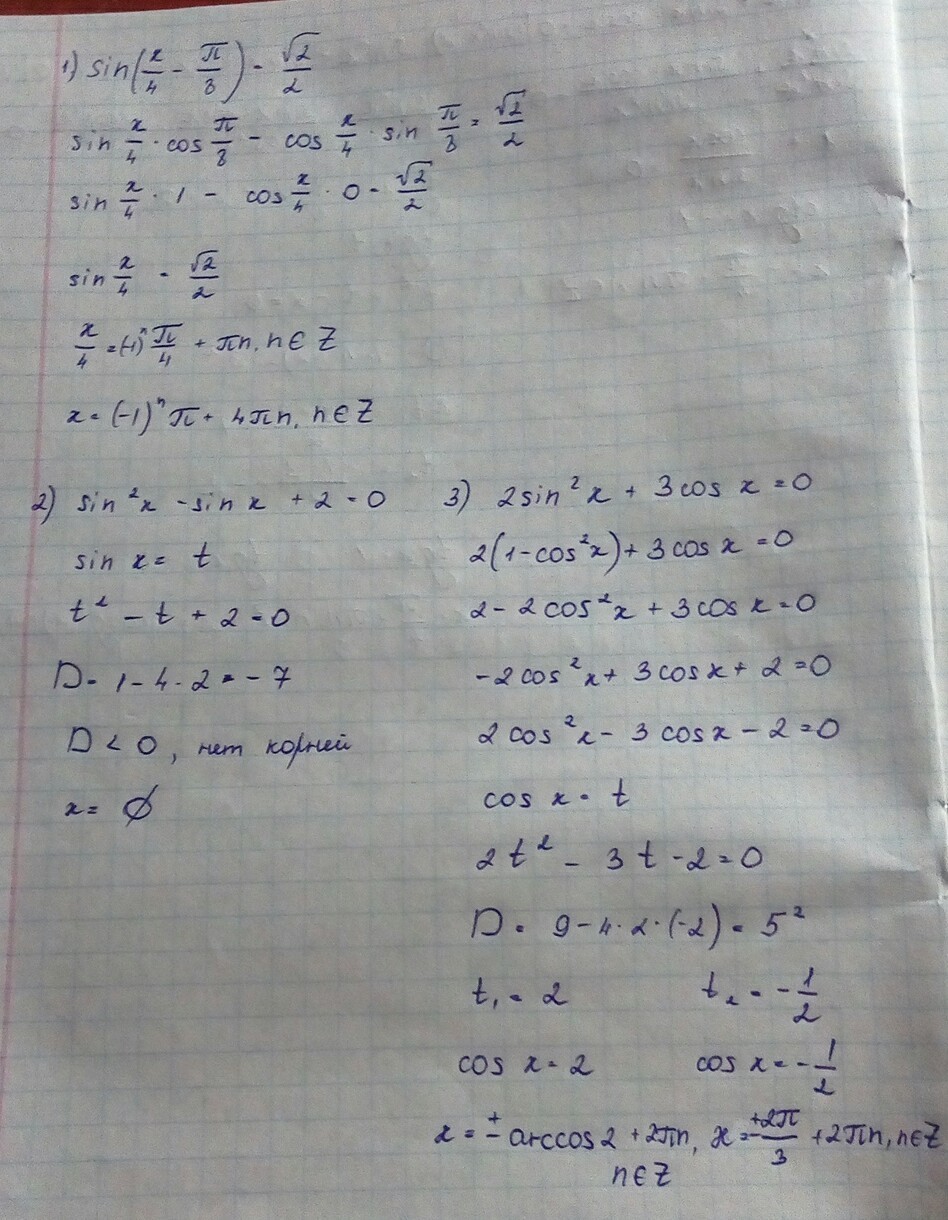 1) sin(x/4 - π/8) = √2/2
sin x/4 · cos π/8 - cos x/4 · sin π/8 = √2/2
sin x/4 · 1 - cos x/4 · 0 = √2/2
sin x/4 = √2/2
x/4 = (-1)ⁿ π/4 + πn, n∈Z
x = (-1)ⁿ π + 4πn, n∈Z
2) sin²x - sin x + 2 = 0
sin x = t
t² - t + 2 = 0
D = 1 - 4 · 2 = -7
D < 0, нет корней
x = ∅
3) 2sin²x + 3cos x = 0
2(1-cos²x) + 3cos x = 0
2 - 2cos²x + 3cos x = 0
-2cos²x + 3cosx + 2 = 0
2cos²x - 3cosx - 2 = 0
cos x = t
2t² - 3t - 2 = 0
D = 9 - 4·2·(-2) = 5²
t₁ = 2 t₂ = -1/2
cos x = 2 cos x = -1/2
x = ± arccos 2 + 2πn, x = ±2π/3 + 2πn, n∈Z
n∈Z